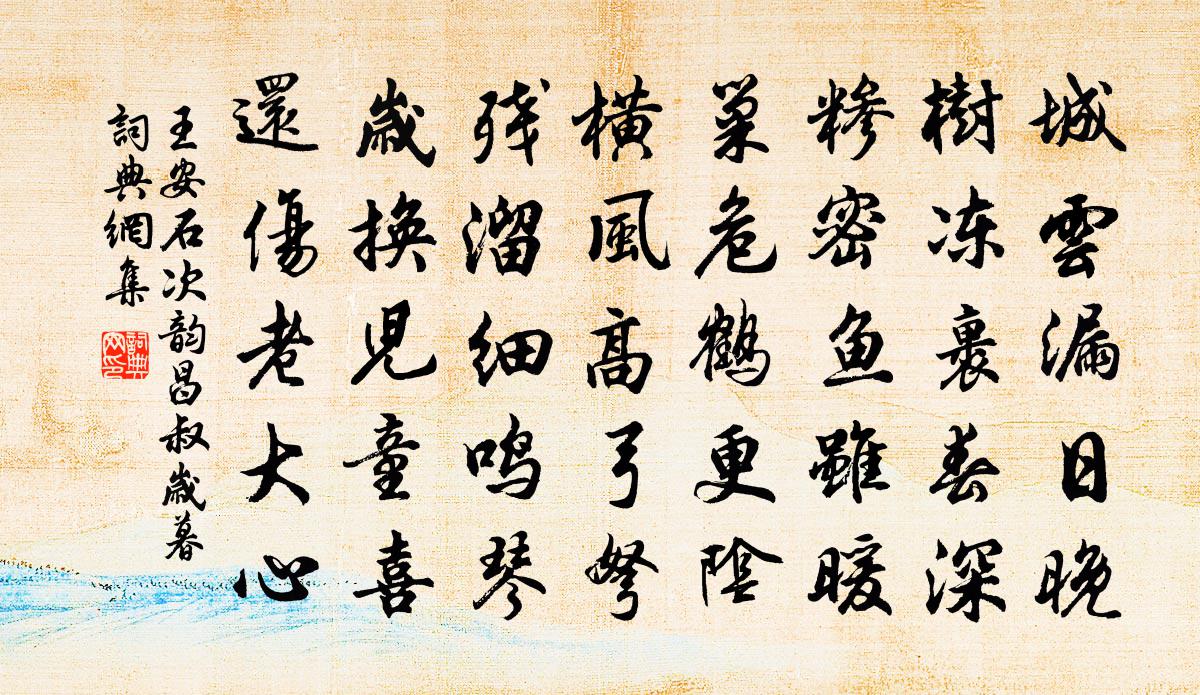 城雲漏日晚
樹冻裹春深
糁密鱼雖暖
巢危鹤更陰
橫風高弓弩
残溜細鸣琴
歲換児童喜
還傷老大心
王安石次韵昌叔歲暮
詞典網集
詞典